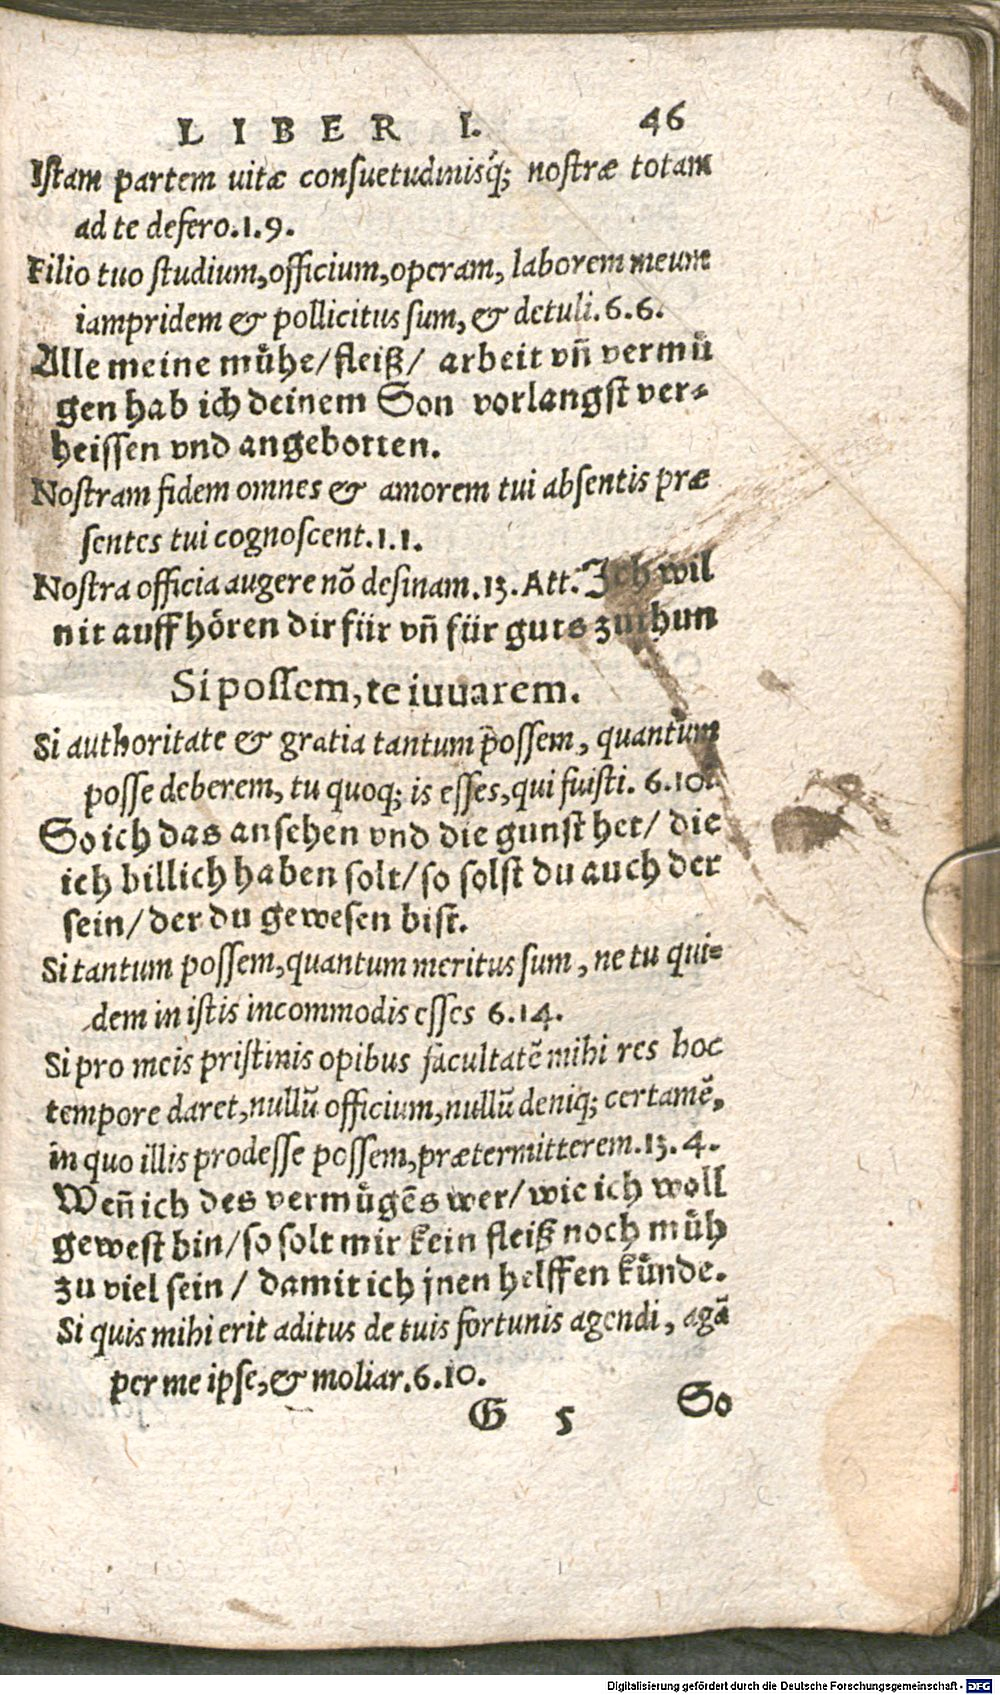 LIBER I. 46
Istam partem uitæ consuetudinisq́; nostræ totam
ad te defero.1.9.
Filio tuo studium, officium, operam, laborem meum
iampridem & pollicitus sum, & detuli.6.6.
Alle meine mühe/fleiß/ arbeit vñ vermü
gen hab ich deinem Son vorlangst ver-
heissen vnd angebotten.
Nostram fidem omnes & amorem tui absentis præ
sentes tui cognoscent.1.1.
Nostra officia augere nõ desinam.13.Att. Ich wil
nit auff hören dir für vñ für guts zuthun
Si possem, te iuuarem.
Si authoritate & gratia tantum possem, quantum
posse deberem, tu quoq; is esses, qui fuisti. 6.10.
So ich das ansehen vnd die gunst het/ die
ich billich haben solt/so solst du auch der
sein/der du gewesen bist.
Si tantum possem, quantum meritus sum, ne tu qui-
dem in istis incommodis esses 6.14.
Si pro meis pristinis opibus facultatẽ mihi res hoc
tempore daret, nullũ officium, nullũ deniq; certamẽ,
in quo illis prodesse possem, prætermitterem.13.4.
Weñ ich des vermügẽs wer/wie ich woll
gewest bin/so solt mir kein fleiß noch müh
zu viel sein/ damit ich jnen helffen künde.
Si quis mihi erit aditus de tuis fortunis agendi, agã
per me ipse, & moliar.6.10.
G 5 So
Digitalisierung gefördert durch die Deutsche Forschungsgemeinschaft - DFG